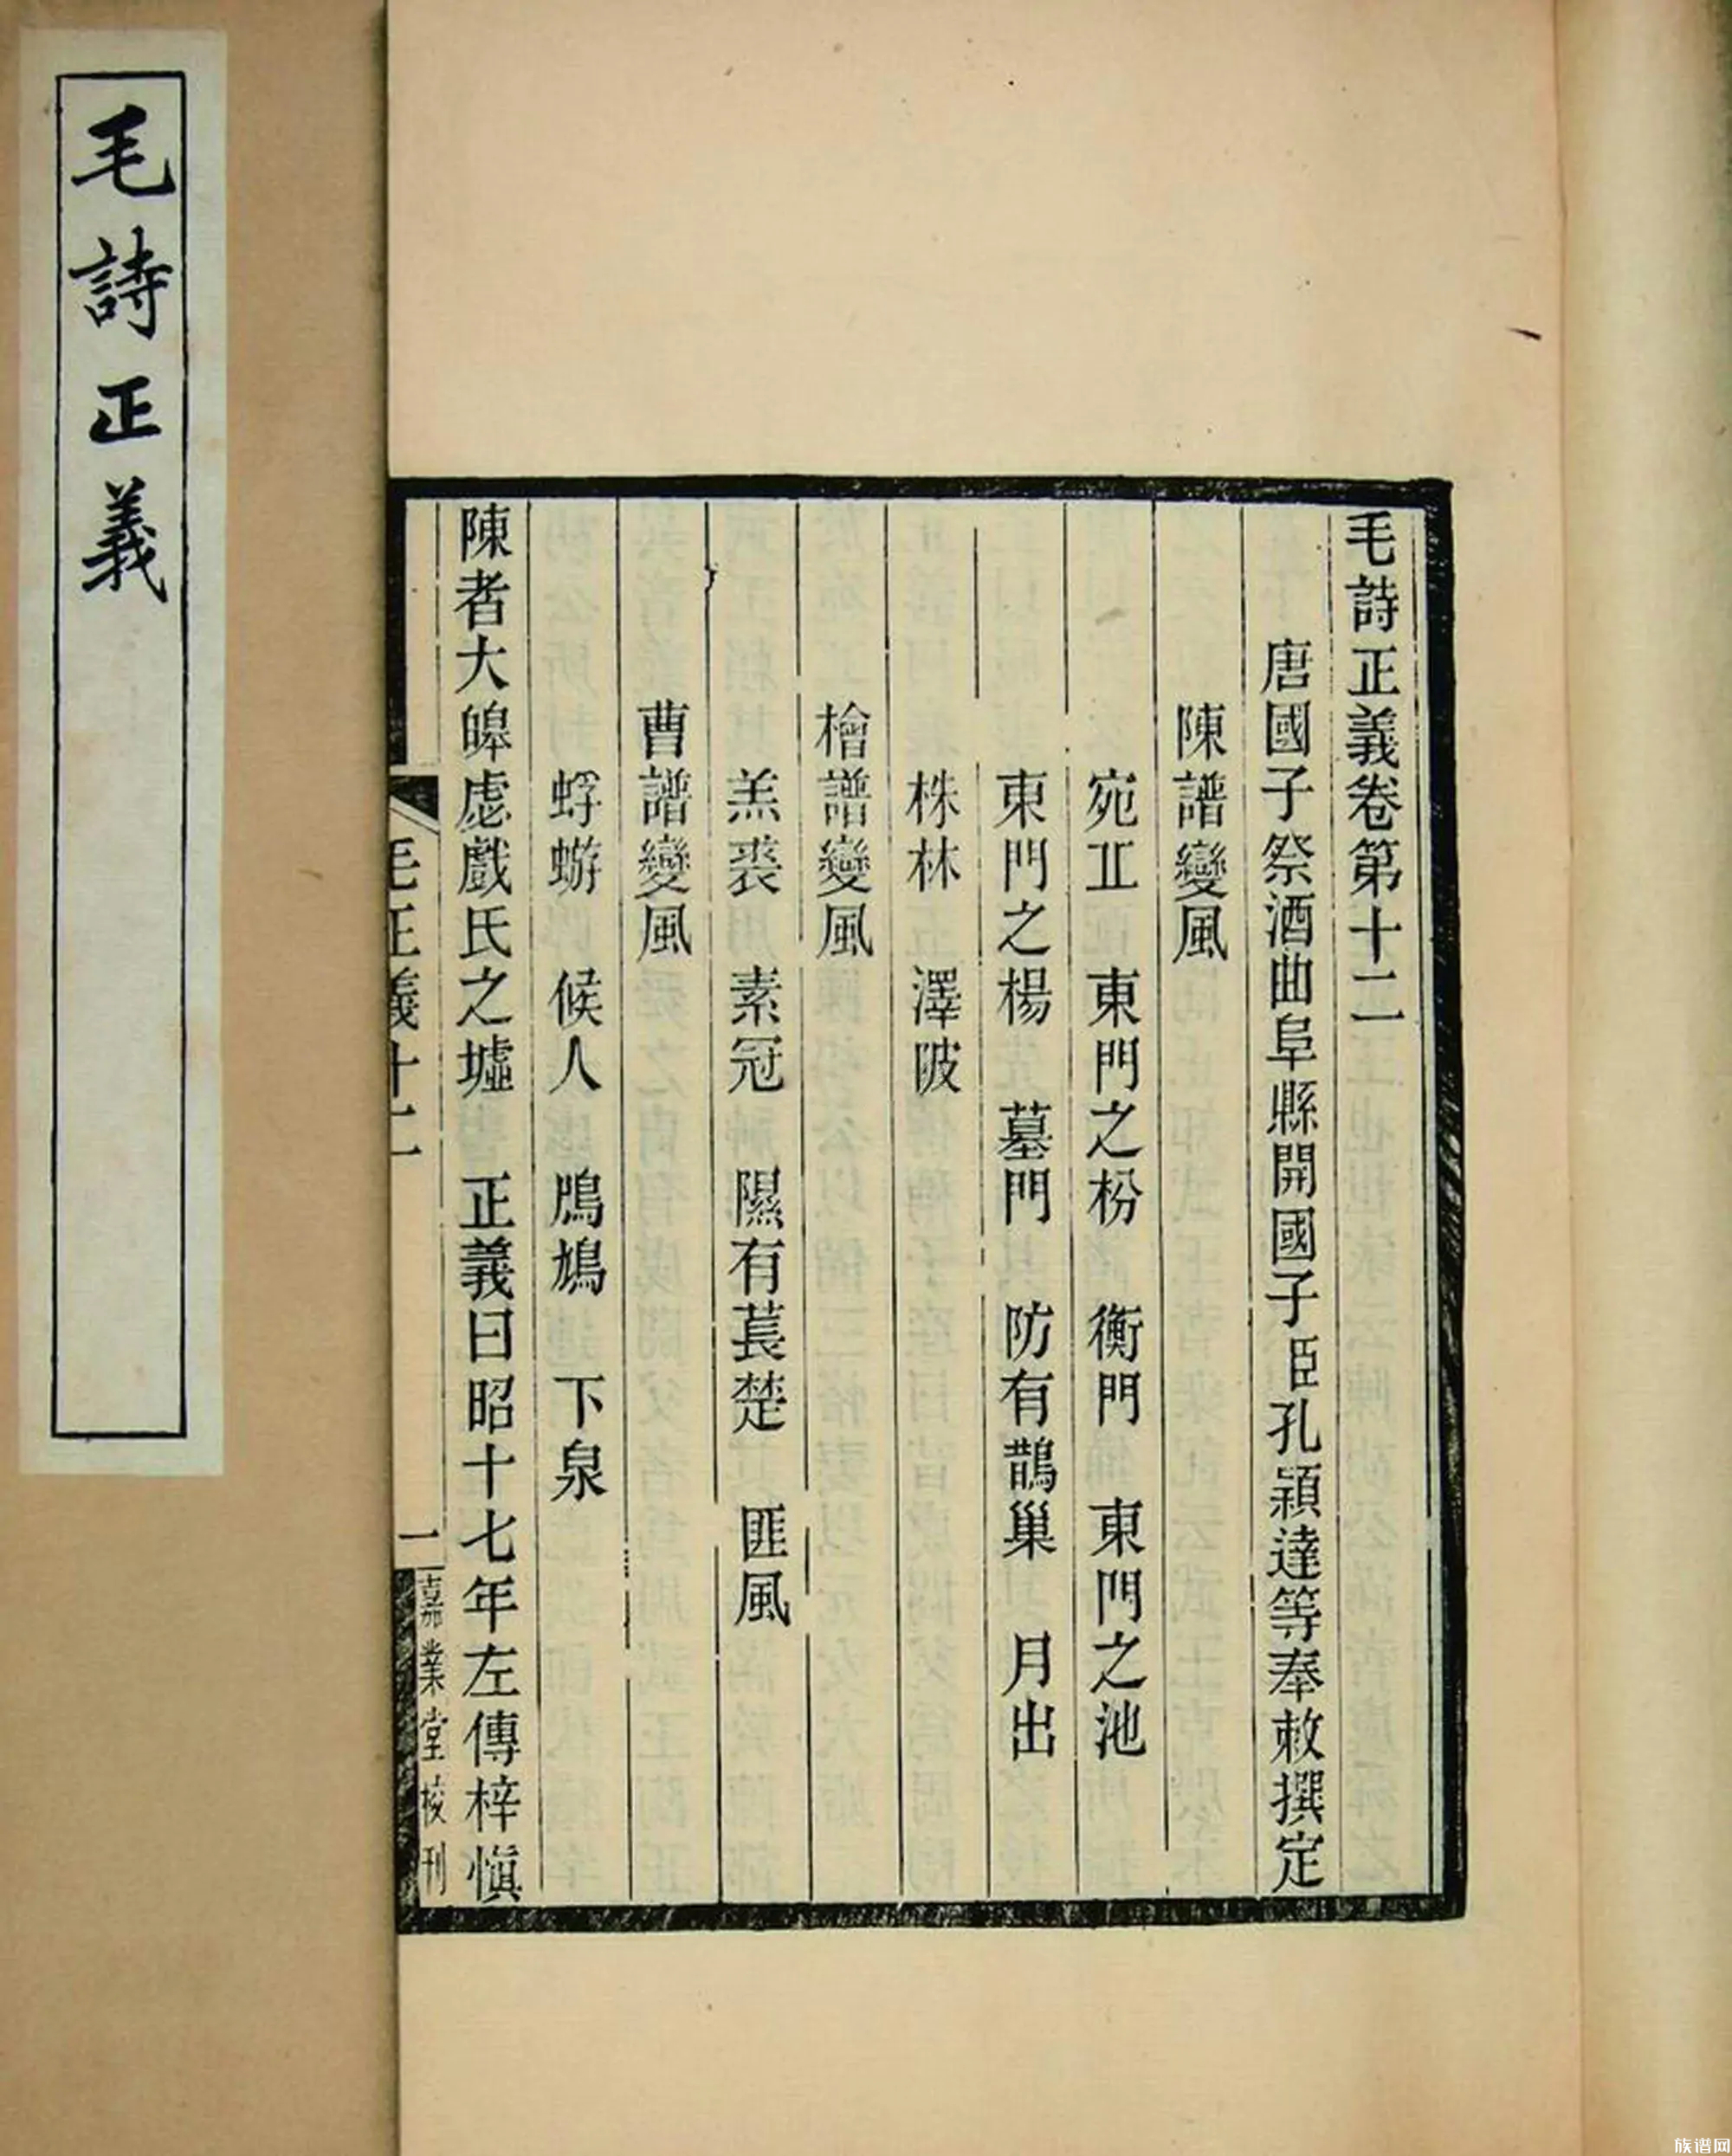 毛詩正義
毛詩正義卷第十二
唐國子祭酒曲阜縣開國子臣孔穎達等奉敕撰定
陳譜變風
宛丘 東門之枌 衡門 東門之池
東門之楊 墓門 防有鵲巢 月出
株林 澤陂
檜譜變風
羔裘 素冠 隰有萇楚 匪風
曹譜變風
蜉蝣 候人 鳲鳩 下泉
陳者大皞虙戲氏之墟 正義曰昭十七年左傳梓慎
毛正義十二
一
嘉業堂校刊
族谱网